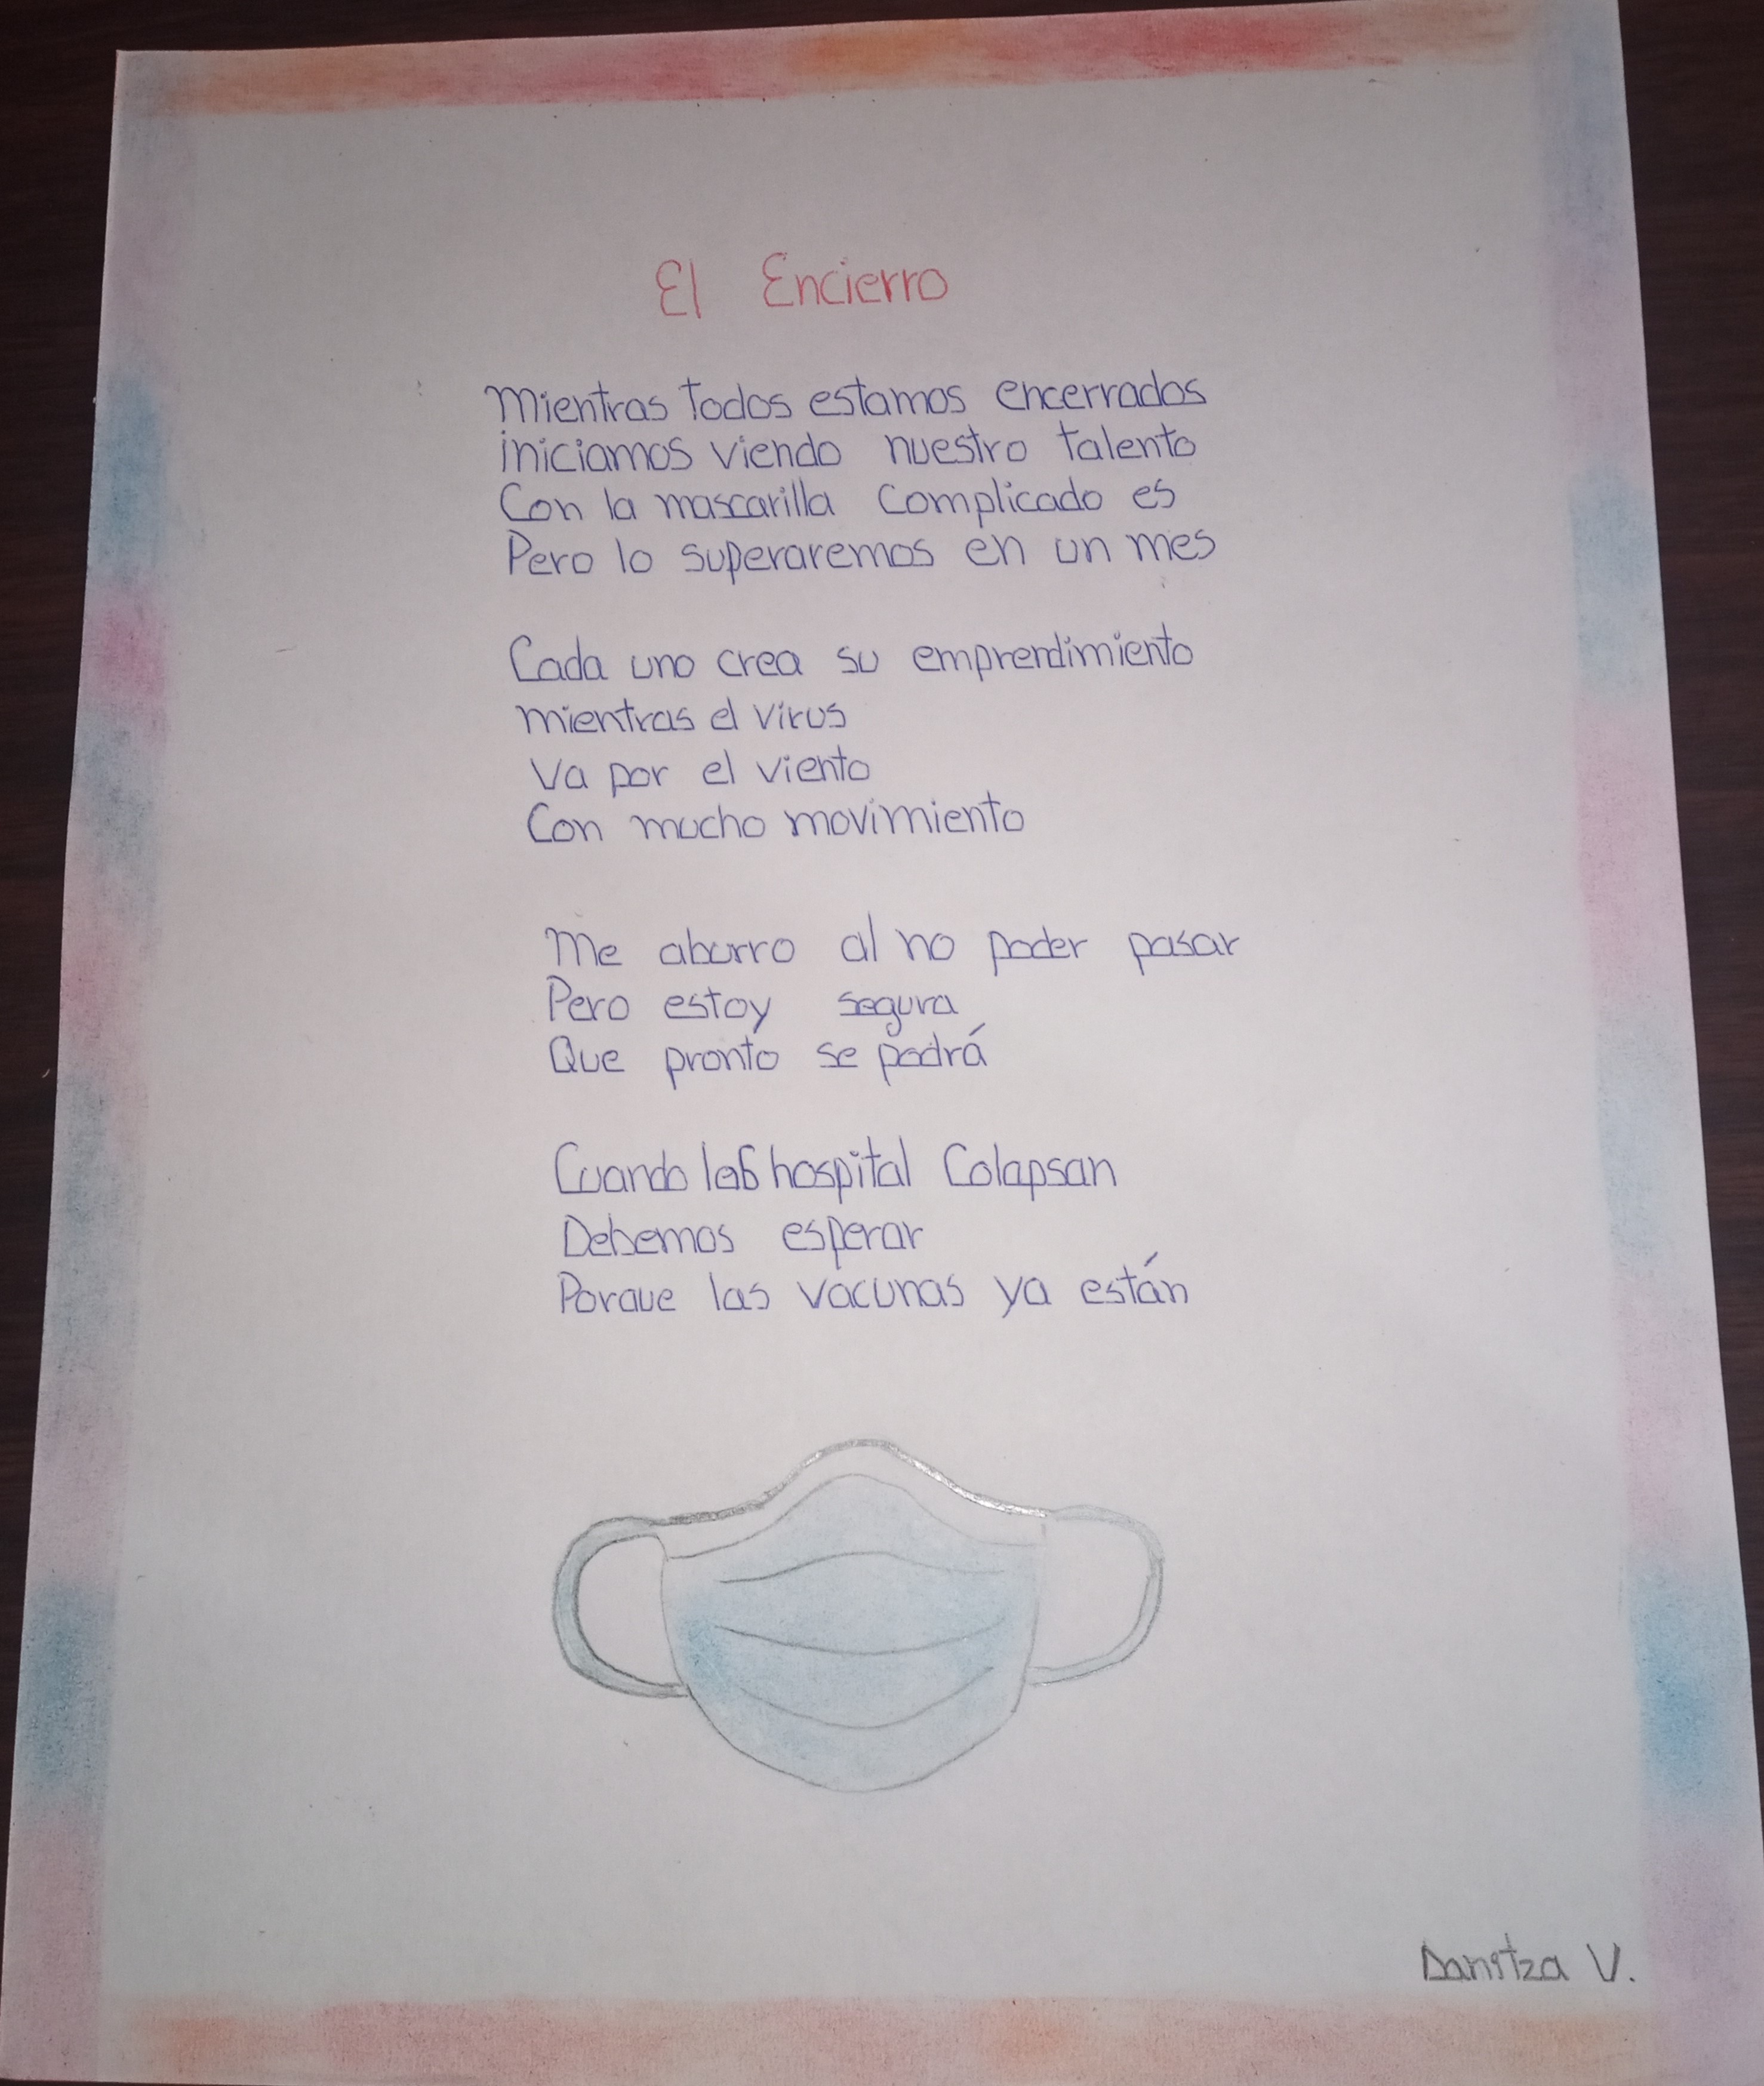 El Encierro
Mientras Todos estamos encerrados
iniciamos viendo nuestro talento
Con la mascarilla Complicado es
Pero lo superaremos en un mes
Cada uno crea su emprendimiento
mientras el virus
Va por el viento
Con mucho movimiento
Me aburro al no poder pasar
Pero estoy segura
Que pronto se podrá
Cuando los hospital Colapsan
Debemos esperar
Porque las vacunas ya están
Danitza V.